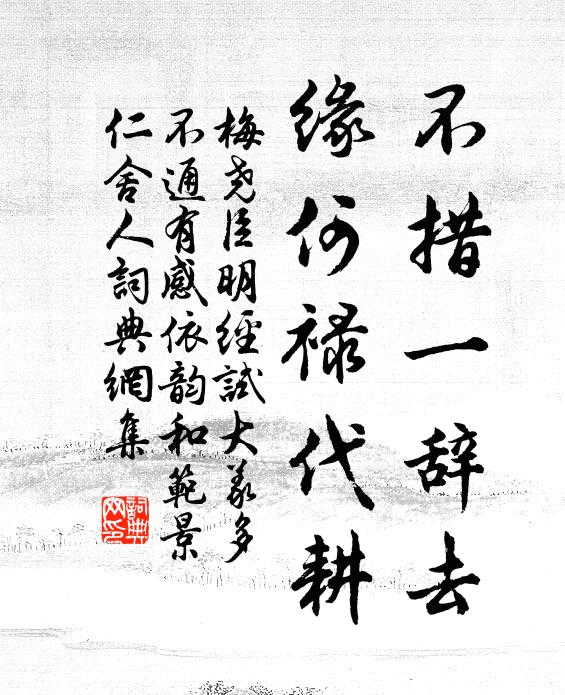 不措一辞去
缘何禄代耕
梅尧臣明經試大义多
不通有感依韵和範景
仁舍人詞典網集
詞典
网印